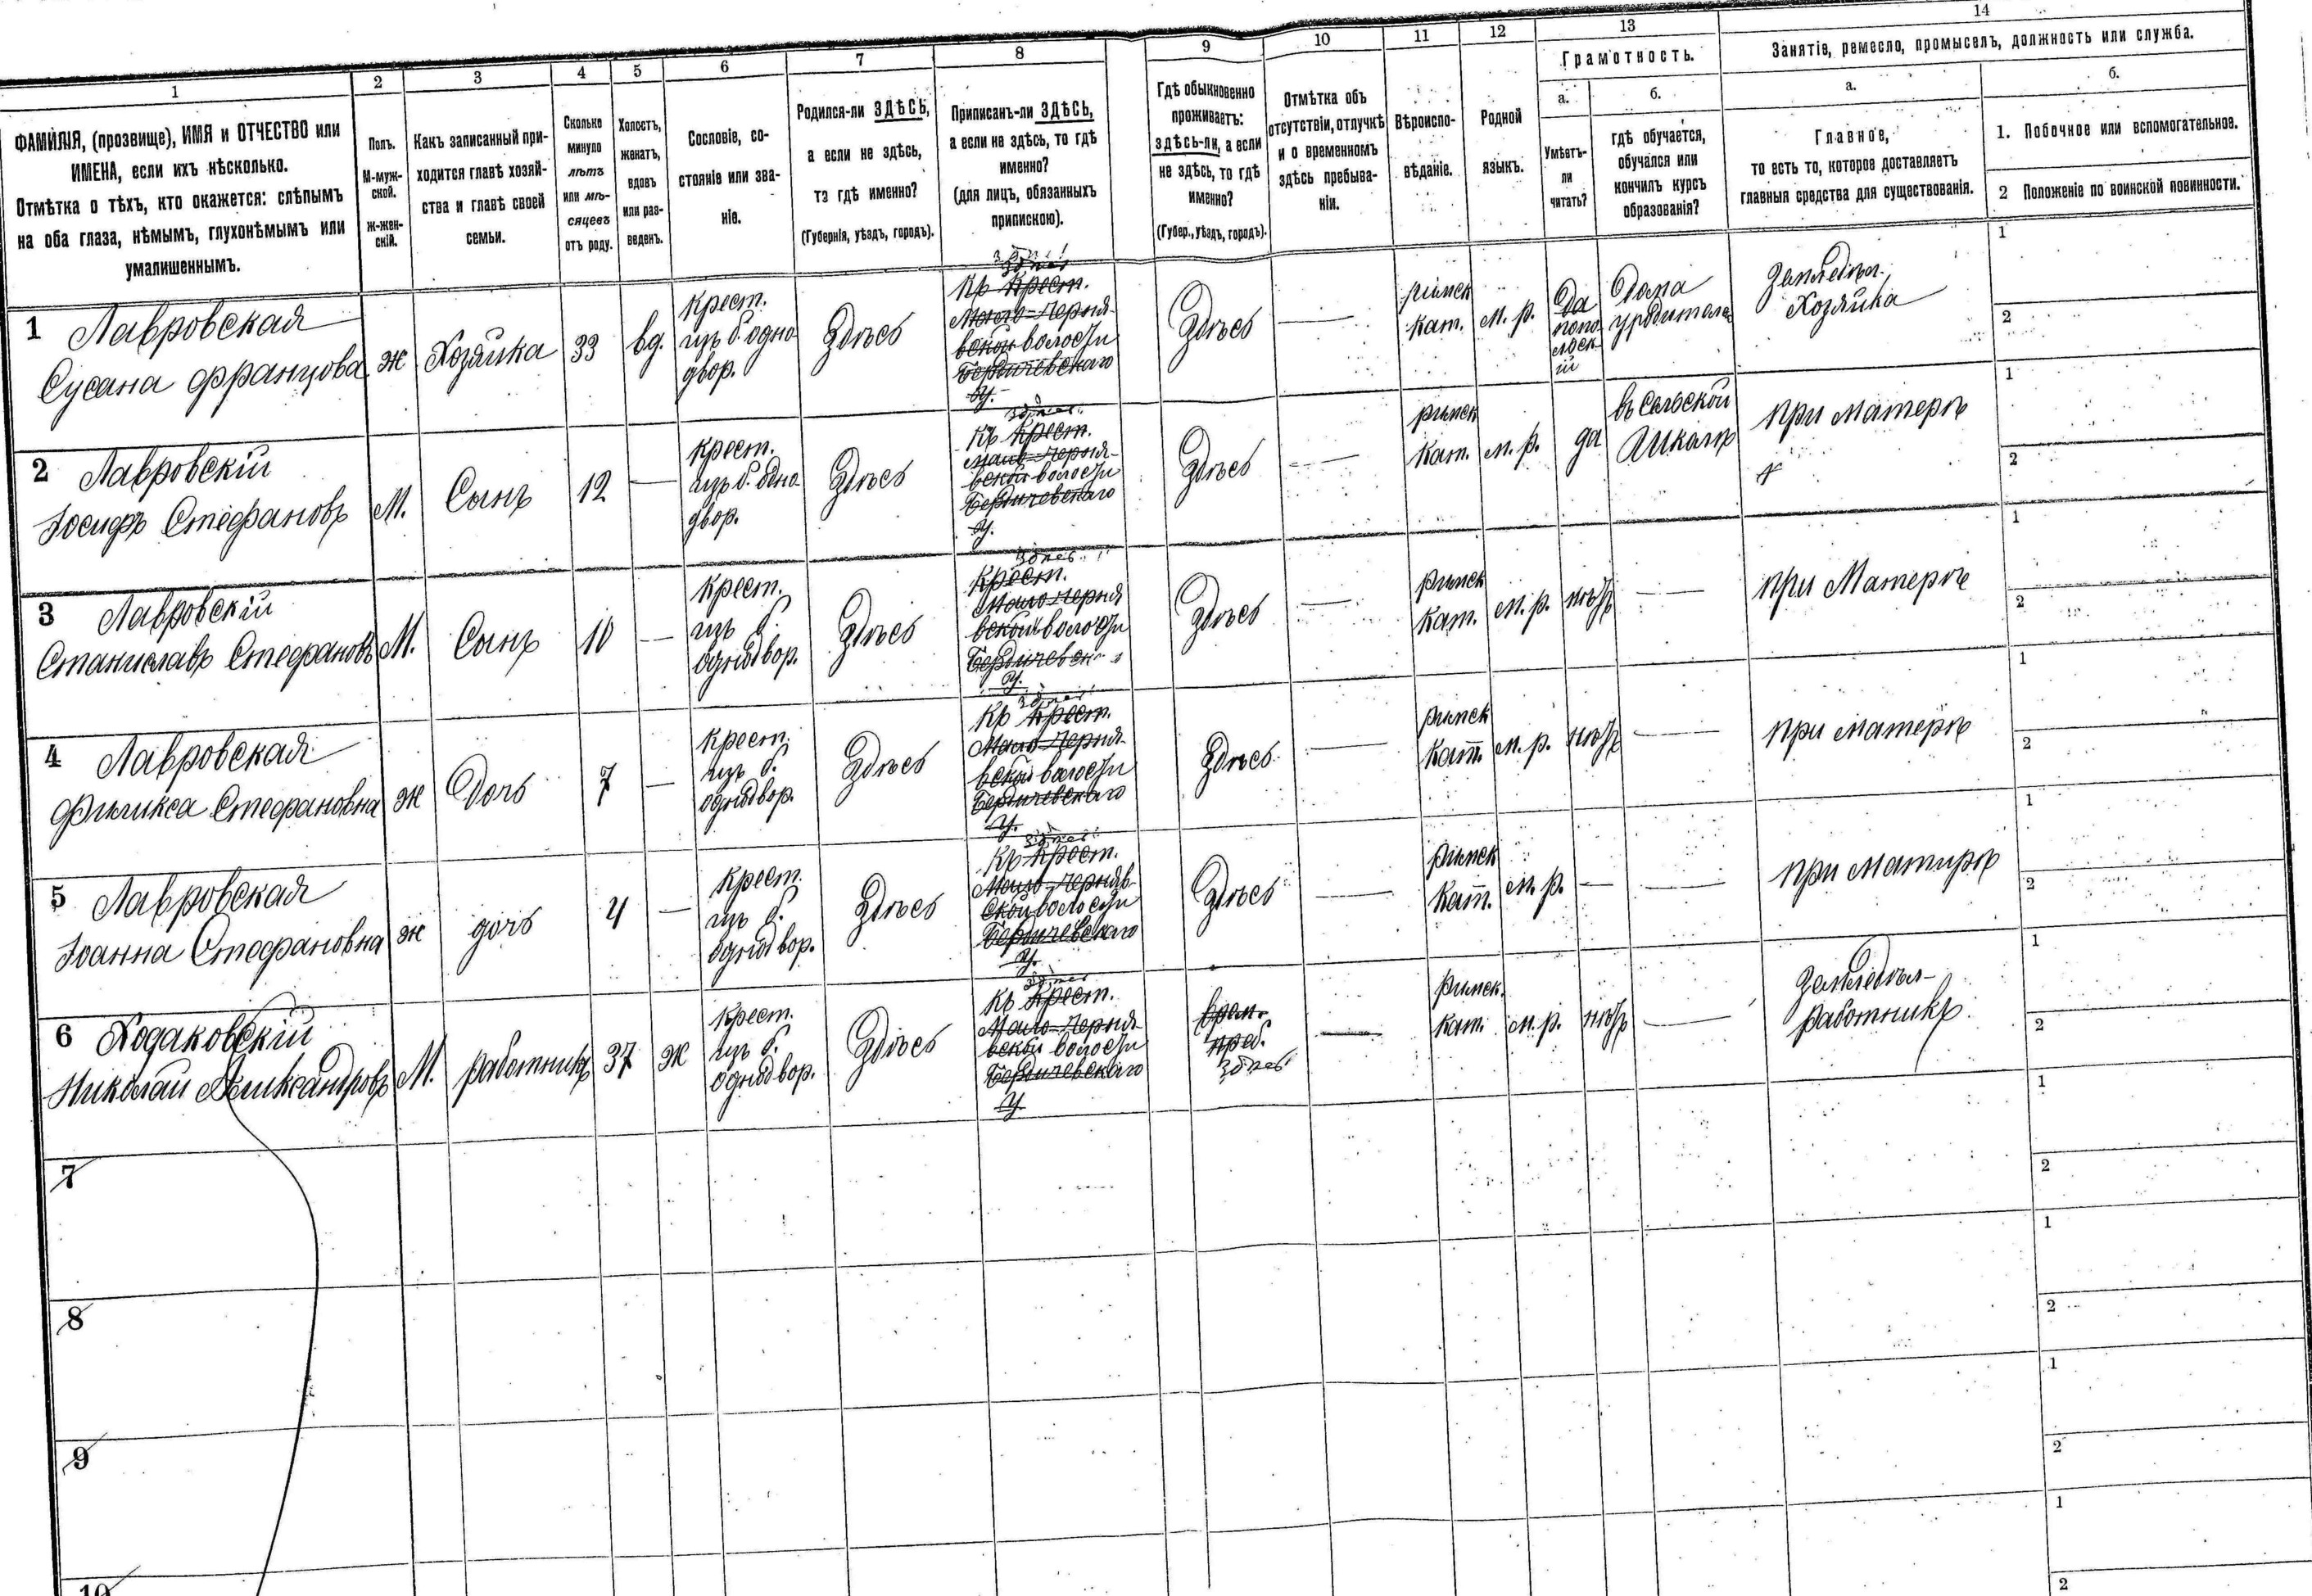 1
2
3
4
5
6
7
8
9
10
11
12
13
14
ФАМИЛІЯ, (прозвище), ИМЯ и ОТЧЕСТВО или
ИМЕНА, если ихъ нѣсколько.
Отмѣтка о тѣхъ, кто окажется: слѣпымъ
на оба глаза, нѣмымъ, глухонѣмымъ или
умалишеннымъ.
Полъ.
М-муж-
ской.
Ж-жен-
скій.
Какъ записанный при-
ходится главѣ хозяй-
ства и главѣ своей
семьи.
Сколько
минуло
лѣтъ
или мѣ-
сяцевъ
отъ роду.
Холостъ,
женатъ,
вдовъ
или раз-
веденъ.
Сословіе, со-
стояніе или зва-
ніе.
Родился-ли ЗДѢСЬ,
а если не здѣсь,
то гдѣ именно?
(Губернія, уѣздъ, городъ).
Приписанъ-ли ЗДѢСЬ,
а если не здѣсь, то гдѣ
именно?
(для лицъ, обязанныхъ
припискою).
Гдѣ обыкновенно
проживаетъ:
здѣсь-ли, а если
не здѣсь, то гдѣ
именно?
(Губер., уѣздъ, городъ).
Отмѣтка объ
отсутствіи, отлучкѣ
и о временномъ
здѣсь пребыва-
ніи.
Вѣроиспо-
вѣданіе.
Родной
языкъ.
Грамотность.
а.
Умѣетъ-
ли
читать?
б.
гдѣ обучается,
обучался или
кончилъ курсъ
образованія?
Занятіе, ремесло, промыселъ, должность или служба.
а.
Главное,
то есть то, которое доставляетъ
главныя средства для существованія.
б.
1. Побочное или вспомогательное.
2 Положеніе по воинской повинности.
1 Лавровская
Сусана Францова
ж
Хозяйка
33
вд.
крест.
изъ б. одно
двор.
Здѣсь
здѣсь
Къ крест.
Мало-Черня-
вской волости
Бердичевскаго
у.
Здѣсь
римск
кат.
м. р.
Да
попо
льск
ій
Дома
у родителей
Земледѣл.
Хозяйка
1
2
2 Лавровскій
Іосифъ Стефановъ
М.
Сынъ
12
крест.
изъ б. одно
двор.
Здѣсь
здѣсь
Къ крест.
Мало-Черня-
вской волости
Бердичевскаго
у.
Здѣсь
римск
кат.
м. р.
да
въ Сельской
Школѣ
при матерѣ
1
2
3 Лавровскій
Станиславъ Стефановъ
М.
Сынъ
10
крест.
изъ б.
однодвор.
Здѣсь
здѣсь
Крест.
Мало-Черня
вской волости
Бердичевск
у.
Здѣсь
римск
кат.
м. р.
нѣтъ
при Матерѣ
1
2
4 Лавровская
Филикса Стефановна
ж
Дочь
7
крест.
изъ б.
однодвор.
Здѣсь
здѣсь
Къ крест.
Мало-Черня-
вской волости
Бердичевскаго
у.
Здѣсь
римск
кат.
м. р.
нѣтъ
при матерѣ
1
2
5 Лавровская
Іоанна Стефановна
ж
дочь
4
крест.
изъ б.
однодвор.
Здѣсь
здѣсь
Къ крест.
Мало-Черняв-
ской волости
Бердичевскаго
у.
Здѣсь
римск
кат.
м. р.
при Матирѣ
1
2
6 Ходаковскій
Николай Александровъ
М.
работникъ
37
ж
крест.
изъ б.
однодвор.
Здѣсь
здѣсь
Къ крест.
Мало-Черня-
вской волости
Бердичевскаго
у.
врем.
преб.
здѣсь
римск.
кат.
м. р.
нѣтъ
Земледѣл-
работникъ
1
2
7
1
2
8
1
2
9
1
2
10
1
2